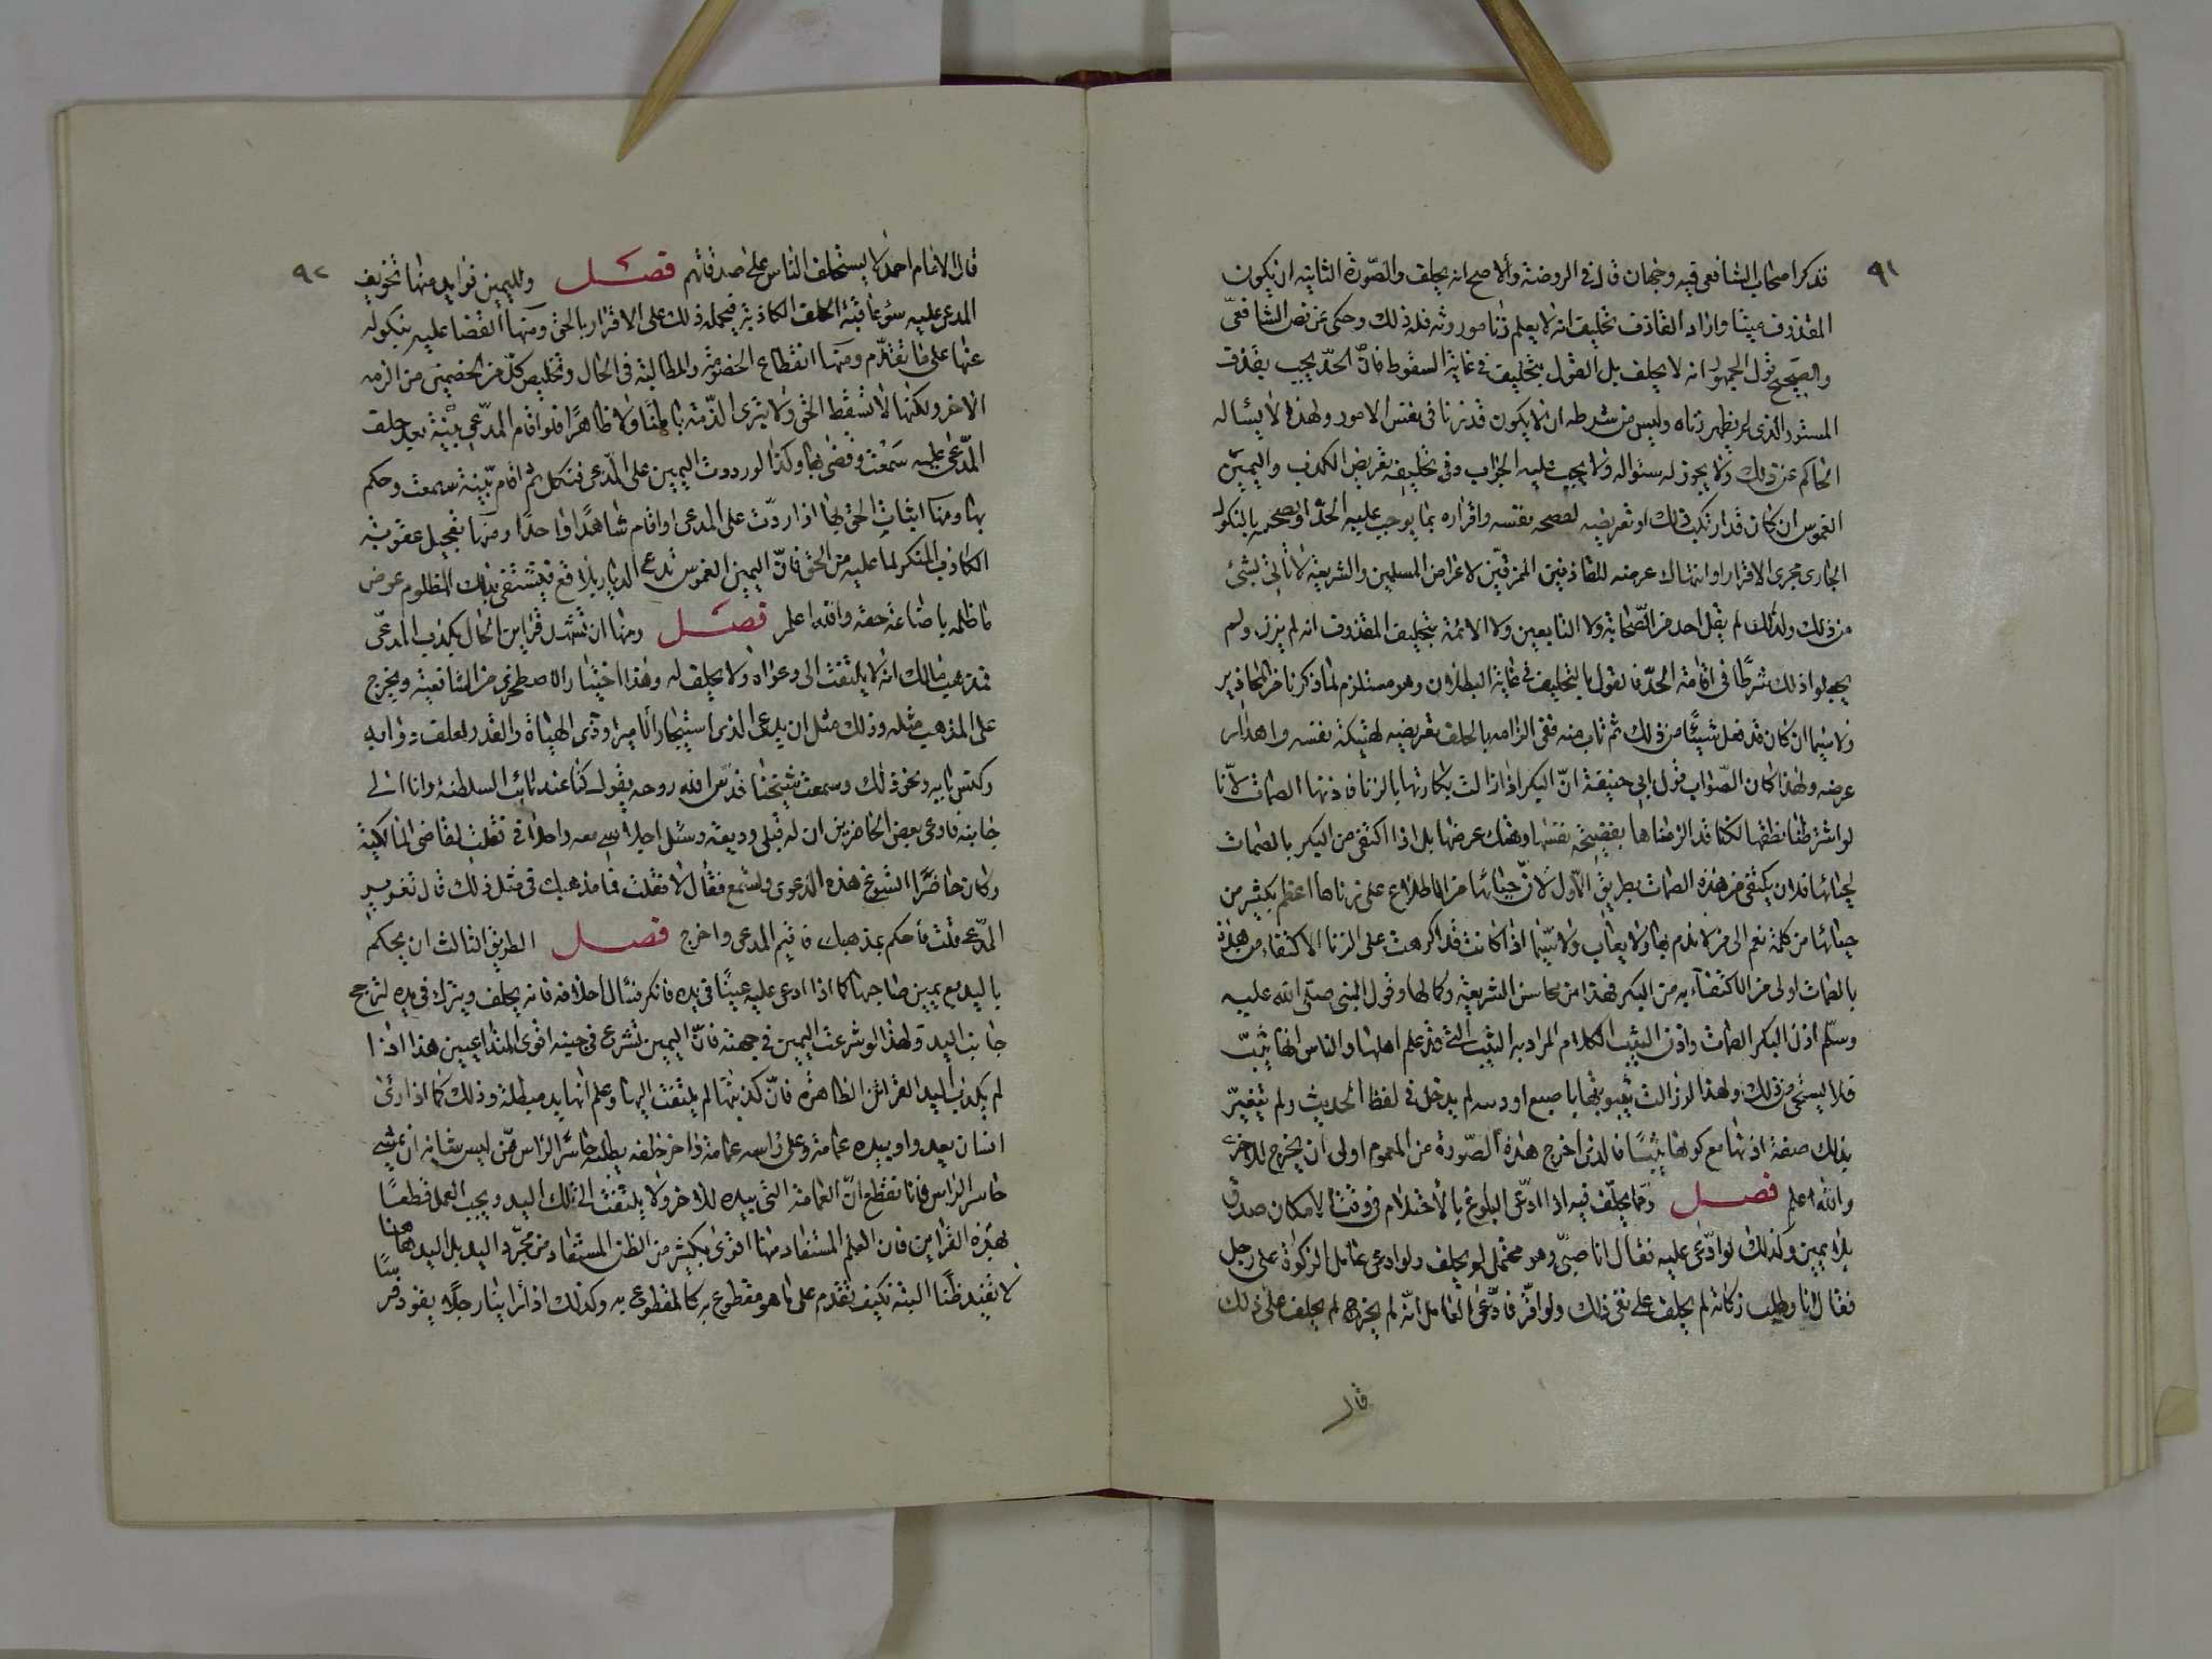 ٩١
فذكر اصحاب الشافعي فيه وجهان قال في الروضة والاصح انه يحلف والصورة الثانية ان يكون
المقذوف ميتا واراد القاذف تحليف انه لا يعلم زنا مورثه فله ذلك وحكى عن نص الشافعي
والصحيح قول الجمهور انه لا يحلف بل القول بتحليفه في غاية السقوط فان الحد يجب بقذف
المستور الذي لم يظهر زناه وليس من شرطه ان لا يكون قد زنا في نفس الامور ولهذا لا يسأله
الحاكم عن ذلك ولا يجوز له سئواله ولا يجب عليه الجواب وفي تحليفه تعريض للكذب واليمين
الغموس ان كان قد ارتكب ذلك او تعريضه لفضحه نفسه واقراره بما يوجب عليه الحد او فضحه بالنكول
الجارى مجرى الاقرار او انتهاك عرضه للقاذفين الممزقين لاعراض المسلمين والشريعة لا تأتي بشئ
من ذلك ولذلك لم يقل احد من الصحابة ولا التابعين ولا الائمة بتحليف المقذوف انه لم يزن ولم
يجعلوا ذلك شرطا في اقامة الحد فالقول بالتحليف في غاية البطلان وهو مستلزم لما ذكرنا من المحاذير
ولا سيما ان كان قد فعل شيئا من ذلك ثم تاب منه ففي الزامه بالحلف تعريضه لهتيكة نفسه واهدار
عرضه ولهذا كان الصواب قول ابي حنيفة ان البكر اذا زالت بكارتها بالزنا فاذنها الصمات لانا
لو اشترطنا نطقها لكنا قد الزمناها بفضيحة نفسها وهتك عرضها بل اذا اكتفى من البكر بالصمات
لحيائها فلان يكتفى من هذه الصمات بطريق الاول لان حيائها من الاطلاع على زناها اعظم بكثير من
حيائها من كلمة نعم التي لا تذم بها ولا تعاب ولا سيما اذا كانت قد اكرهت على الزنا الاكتفاء من هذه
بالصمات اولى من الاكتفاء به من البكر فهذا من محاسن الشريعة وكمالها وقول النبي صلى الله عليه
وسلم اذن البكر الصمات واذن الثيب الكلام المراد به الثيب التي قد علم اهلها والناس انها ثيب
فلا يستحى من ذلك ولهذا لو زالت بثيوبتها باصبع او وثبة لم يدخل في لفظ الحديث ولم يتغير
بذلك صفة اذنها مع كونها ثيبا فالذي اخرج هذه الصورة من العموم اولى ان يخرج للاخرى
والله اعلم فصل ومما يحلف فيه اذا ادعى البلوغ بالاحتلام في وقت الامكان صدق
بلا يمين وكذلك لو ادعى عليه فقال انا صبي وهو محتمل لم يحلف ولو ادعى عامل الزكوة على رجل
فقال نا وطلب زكاته لم يحلف على نفى ذلك ولو اقر فادعى العامل انه لم يخرج لم يحلف على ذلك
قال
٩٢
قال الامام احمد لا يستحلف الناس على صدقاتهم فصل ولليمين فوايد منها تخويف
المدعى عليه سوء عاقبة الحلف الكاذبة فيحمله ذلك على الاقرار بالحق ومنها القضا عليه بنكوله
عنها على ما تقدم ومنها انقطاع الخصومة والمطالبة في الحال وتخليص كل من الخصمين من لازمه
الاخر ولكنها لا تسقط الحق ولا تبرى الذمة باطنا ولا ظاهرا فلو اقام المدعى بينة بعد حلف
المدعى عليه سمعت وقضى بها وكذا لو ردت اليمين على المدعى فنكل ثم اقام بينة سمعت وحكم
بها ومنها اثبات الحق بها اذا ردت على المدعى او اقام شاهدا واحدا ومنها تعجيل عقوبة
الكاذب المنكر لما عليه من الحق فان اليمين الغموس تدع الديار بلاقع فيشتفى بذلك المظلوم عوض
ما ظلمه باضاعة حقه والله اعلم فصل ومنها ان تشهد قراين الحال بكذب المدعى
فمذهب مالك انه لا يلتفت الى دعواه ولا يحلف له وهذا اختيار الاصطخري من الشافعية ويخرج
على المذهب مثله وذلك مثل ان يدعى الدنى استيجار الامير او ذى الهيأة والقدر لعلف دوابه
وكنس بابه ونحو ذلك وسمعت شيخنا قدس الله روحه يقول كنا عند نائب السلطنة وانا الى
جانبه فادعى بعض الحاضرين ان له قبلي وديعة وسئل اجلاسي معه واحلافي فقلت لقاضى المالكية
وكان حاضرا اتسوغ هذه الدعوى وتسمع فقال لا فقلت فما مذهبك في مثل ذلك قال تعزير
المدعى قلت فاحكم بمذهبك فاقيم المدعى واخرج فصل الطريق الثالث ان يحكم
باليد مع يمين صاحبها كما اذا ادعى عليه عينا في يده فانكر فسأل احلافه فانه يحلف ويترك في يده لترجح
جانب اليد ولهذا لو شرعت اليمين في جهته فان اليمين تشرع في جنبة اقوى المتداعيين هذا اذا
لم يكذب اليد القرائن الظاهرة فان كذبتها لم يلتفت اليها وعلم انها يد مبطلة وذلك كما اذا رئى
انسان يعدو وبيده عمامة وعلى راسه عمامة واخر خلفه يطلبه حاسر الراس ممن ليس شانه ان يمشي
حاسر الراس فانا نقطع ان العمامة التي بيده للاخر ولا يلتفت الى تلك اليد ويجب العمل قطعا
بهذه القراين فان العلم المستفاد منها اقوى بكثير من الظن المستفاد من مجرد اليد بل اليد هاهنا
لا تفيد ظنا البتة فكيف تقدم على ما هو مقطوع به كالمقطوع به وكذلك اذا راينا رجلا يقود فرسا